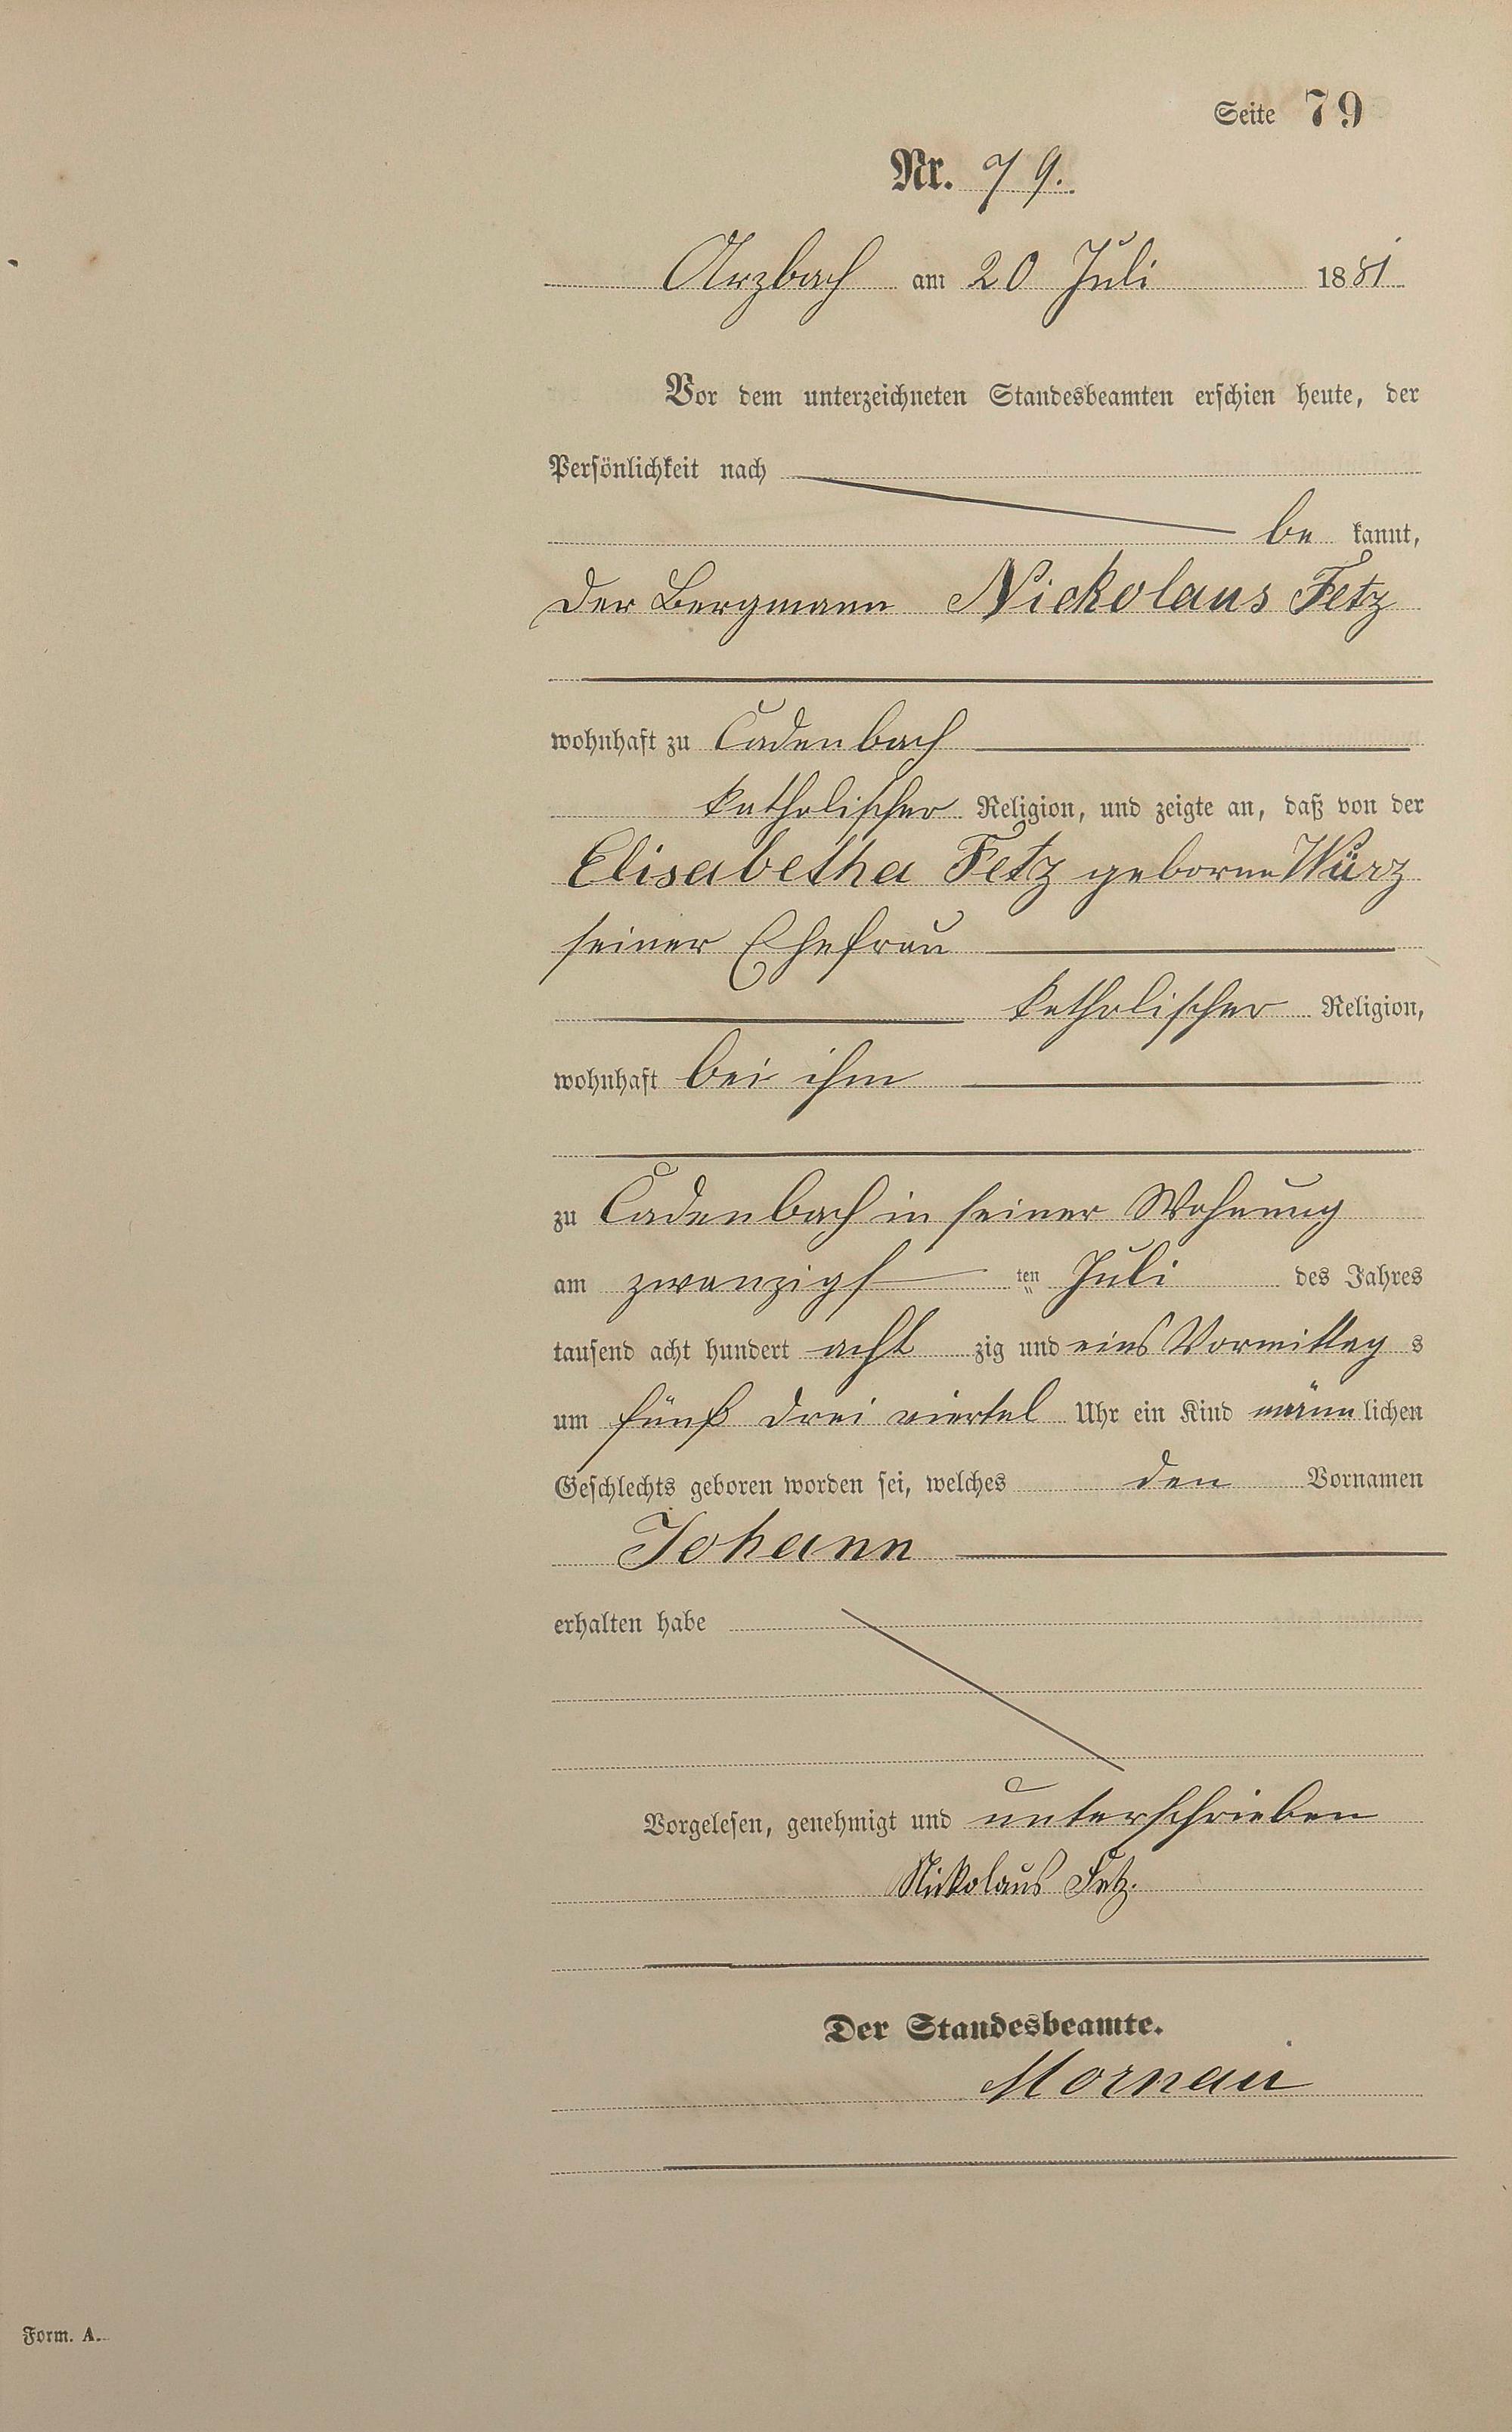 Seite 79
Nr. 79.
Arzbach am 20 Juli 1881
Vor dem unterzeichneten Standesbeamten erschien heute, der
Persönlichkeit nach
be kannt,
der Bergmann Nickolaus Fetz
wohnhaft zu Cadenbach
katholischer Religion, und zeigte an, daß von der
Elisabetha Fetz geborne Würz
seiner Ehefrau
katholischer Religion,
wohnhaft bei ihm
zu Cadenbach in seiner Wohnung
am zwanzigs ten Juli des Jahres
tausend acht hundert acht zig und eins Vormittag s
um fünf drei viertel Uhr ein Kind männ lichen
Geschlechts geboren worden sei, welches den Vornamen
Johann
erhalten habe
Vorgelesen, genehmigt und unterschrieben
Nickolaus Fetz.
Der Standesbeamte.
Mornau
Form. A.